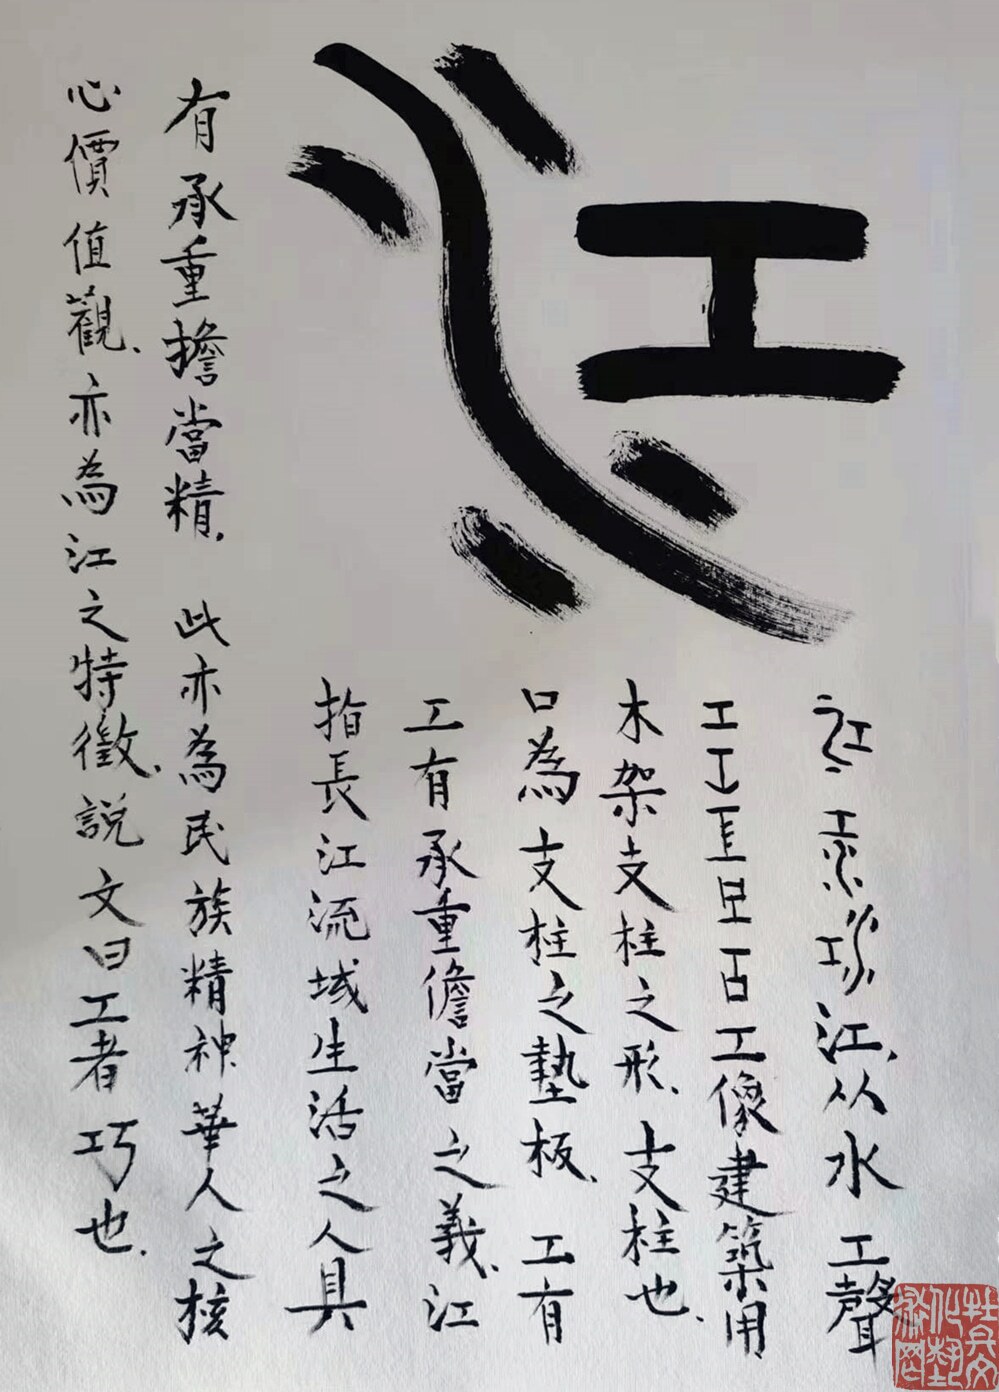 江
江從水工聲
工工工工工像建築用
木架支柱之形、支柱也、
口為支柱之墊板、工有
工有承重儋當之義、江
指長江流域生活之人具
有承重擔當精、此亦為民族精神、華人之核
心價值觀、亦為江之特徵、説文曰工者巧也、